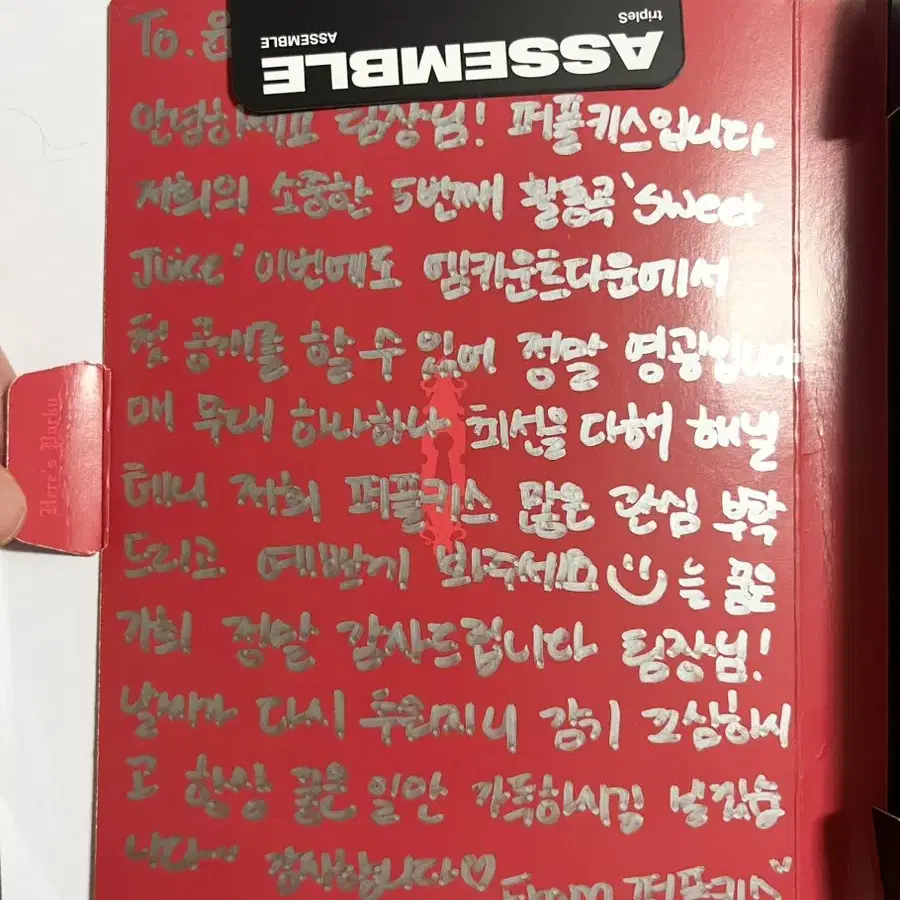 tripleS
ASSEMBLE
ASSEMBLE
To. 윤
안녕하세요 팀장님! 퍼플키스입니다
저희의 소중한 5번째 활동곡 'Sweet
Juice' 이번에도 엠카운트다운에서
첫 공개를 할 수 있어 정말 영광입니다
매 무대 하나하나 최선을 다해 해낼
테니 저희 퍼플키스 많은 관심 부탁
드리고 예쁘게 봐주세요 늘
정말 감사드립니다 팀장님!
날씨가 다시 추워지니 감기 조심하시
고 항상 좋은 일만 가득하시길 바라겠습
니다~ 감사합니다♡
From 퍼플키스
Here's Purky